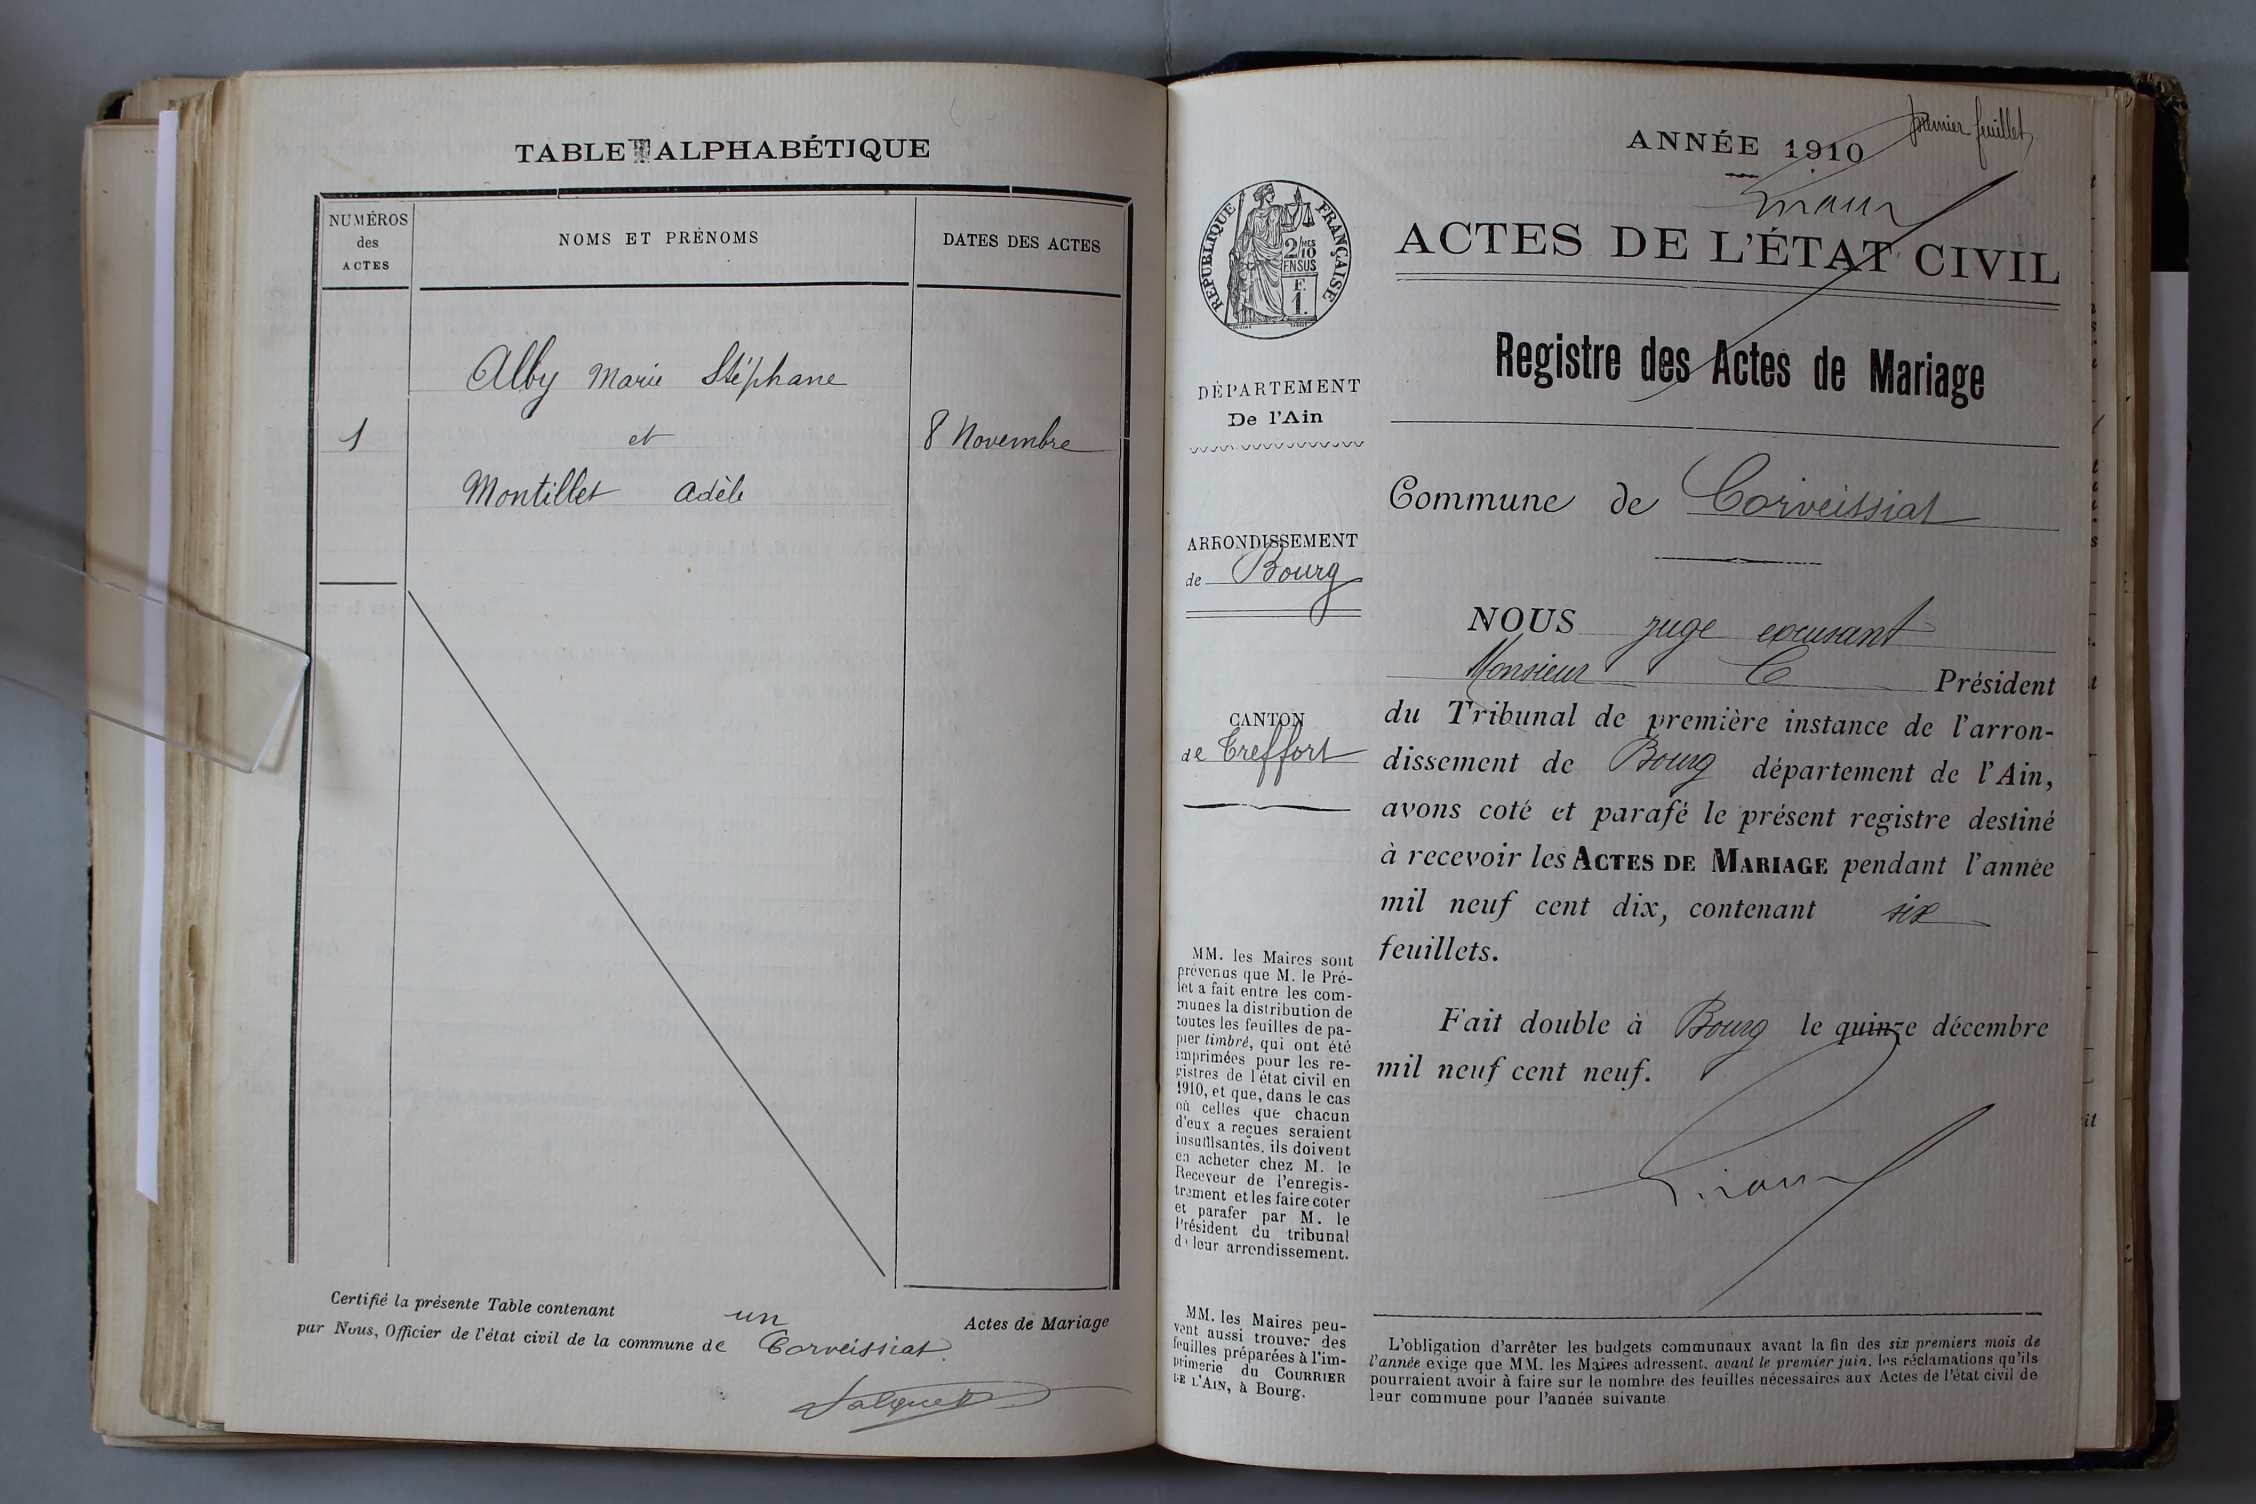 TABLE ALPHABÉTIQUE
NUMÉROS
des
ACTES
NOMS ET PRÉNOMS
DATES DES ACTES
Alby Marie Stéphane
1 et 8 Novembre
Montillet Adèle
Certifié la présente Table contenant un Actes de Mariage
par Nous, Officier de l'état civil de la commune de Corveissiat
premier feuillet
ANNÉE 1910
RÉPUBLIQUE FRANÇAISE
2/MES
10
EN SUS
F.
1.
ACTES DE L'ÉTAT CIVIL
Registre des Actes de Mariage
DÉPARTEMENT
De l'Ain
Commune de Corveissiat
ARRONDISSEMENT
de Bourg
CANTON
de Treffort
NOUS juge excusant
Monsieur le Président
du Tribunal de première instance de l'arron-
dissement de Bourg département de l'Ain,
avons coté et parafé le présent registre destiné
à recevoir les ACTES DE MARIAGE pendant l'année
mil neuf cent dix, contenant six
feuillets.
Fait double à Bourg le quinze décembre
mil neuf cent neuf.
MM. les Maires sont
prévenus que M. le Pré-
fet a fait entre les com-
munes la distribution de
toutes les feuilles de pa-
pier timbré, qui ont été
imprimées pour les re-
gistres de l'état civil en
1910, et que, dans le cas
où celles que chacun
d'eux a reçues seraient
insuffisantes, ils doivent
en acheter chez M. le
Receveur de l'enregis-
trement et les faire coter
et parafer par M. le
Président du tribunal
de leur arrondissement.
MM. les Maires peu-
vent aussi trouver des
feuilles préparées à l'im-
primerie du COURRIER
DE L'AIN, à Bourg.
L'obligation d'arrêter les budgets communaux avant la fin des six premiers mois de
l'année exige que MM. les Maires adressent, avant le premier juin, les réclamations qu'ils
pourraient avoir à faire sur le nombre des feuilles nécessaires aux Actes de l'état civil de
leur commune pour l'année suivante